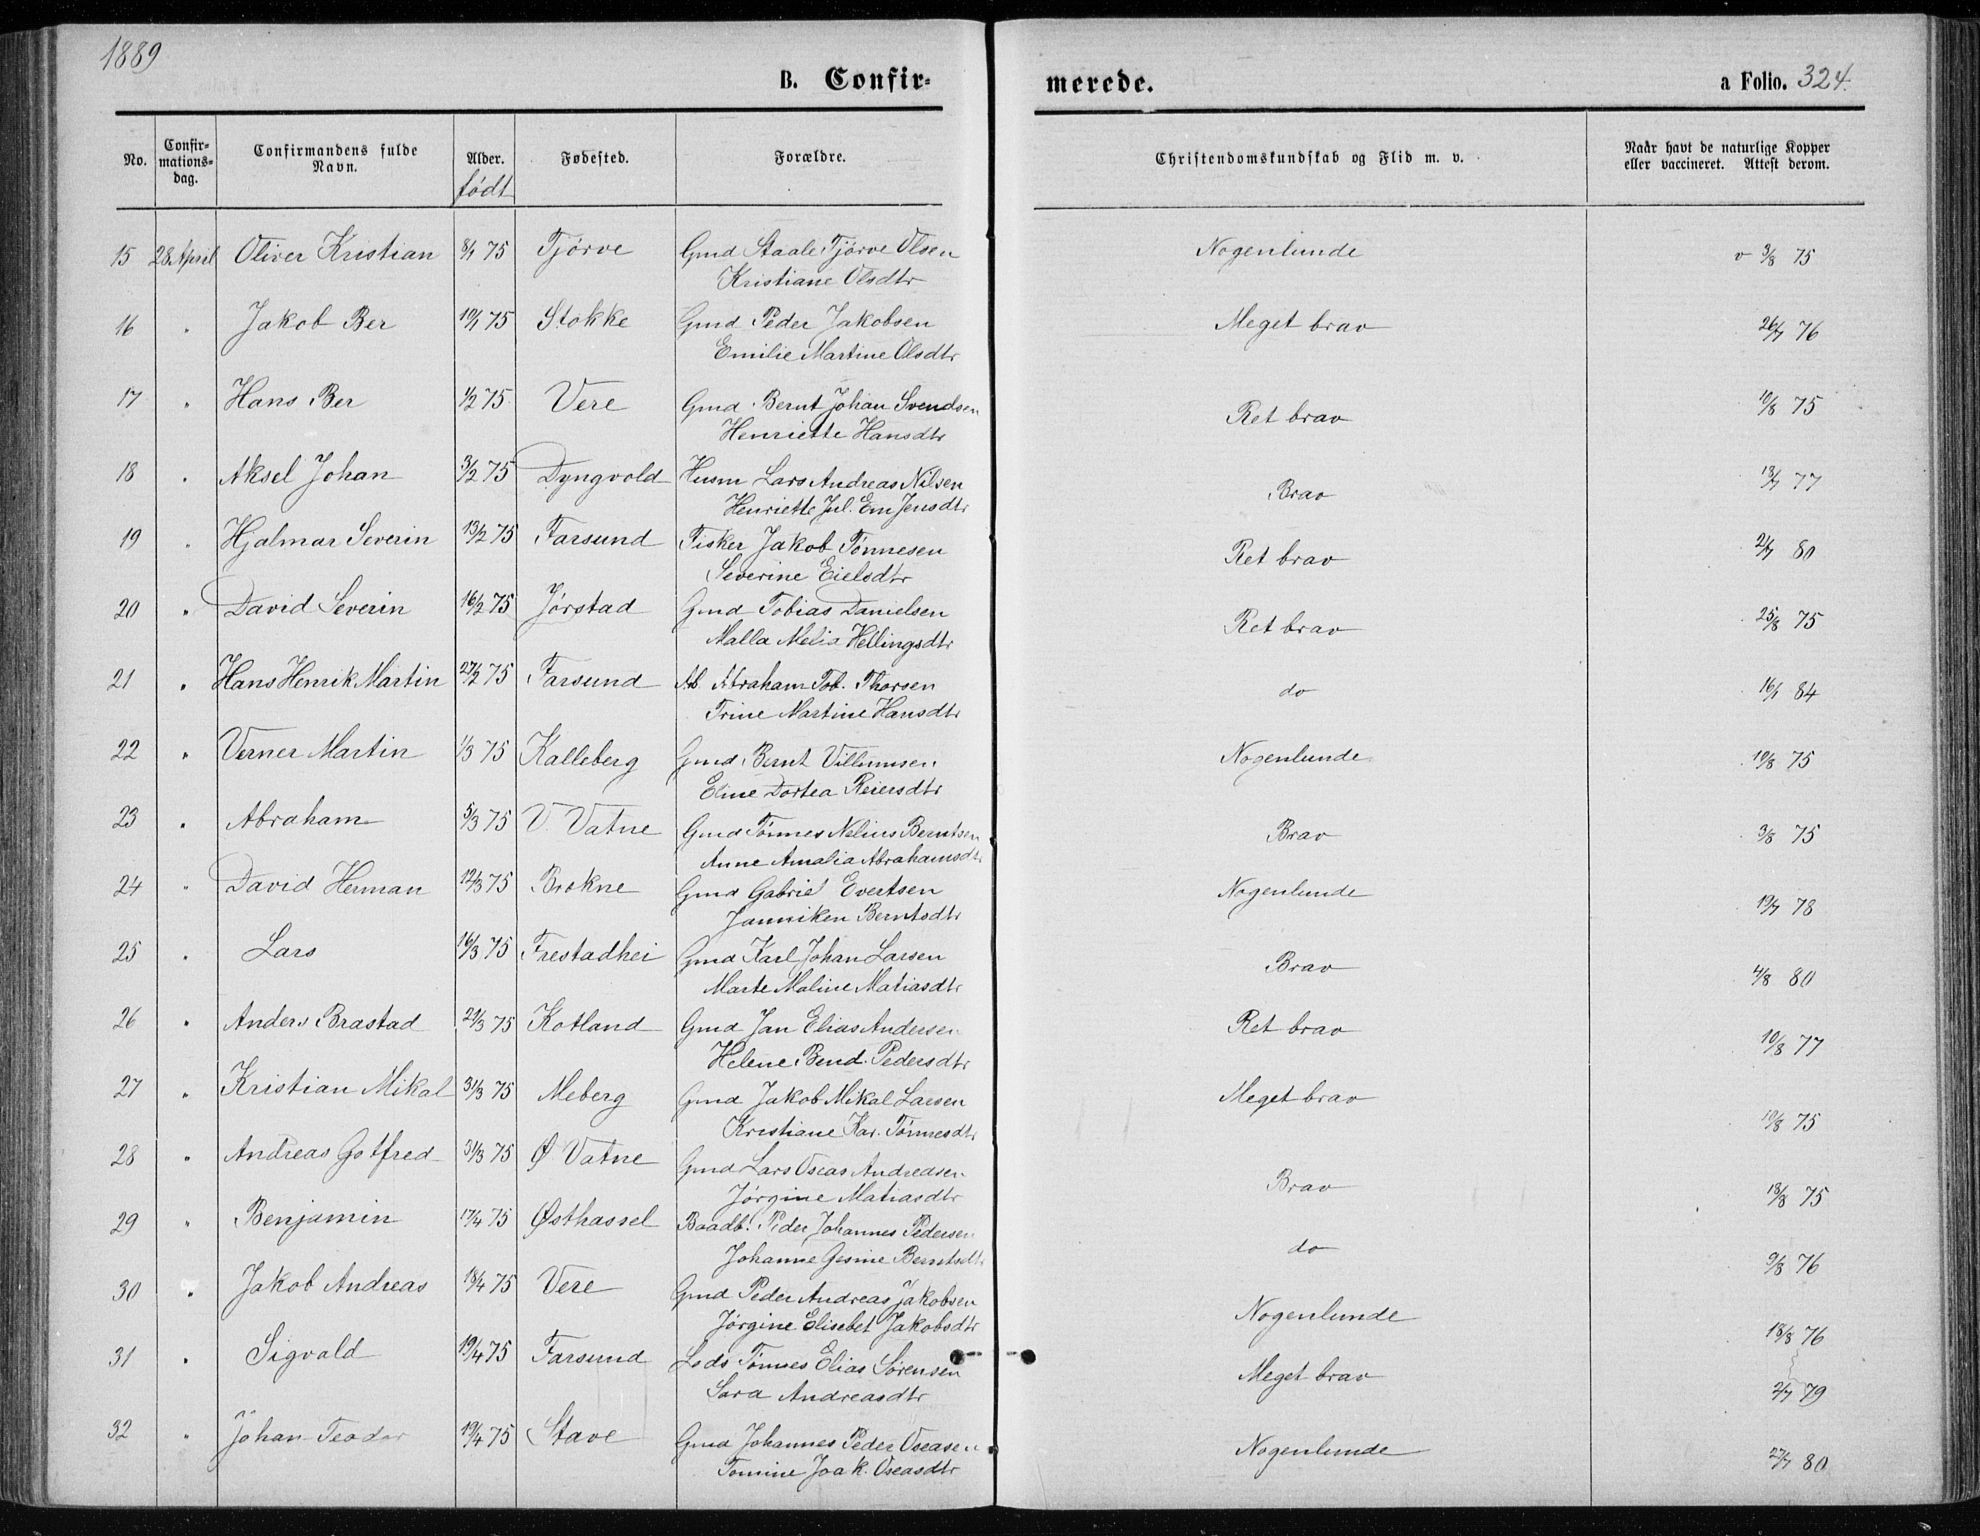 1889
B. Confir-
merede.
a Folio. 324.
No. Confir-mations-dag. Confirmandens fulde Navn. Alder. født Fødested. Forældre. Christendomskundskab og Flid m. v. Naar havt de naturlige Kopper eller vaccineret. Attest derom.
15 28. April Oliver Kristian 8/1 75 Tjørve Gmd Staale Tjørve Olsen Nogenlunde v 3/8 75
Kristiane Olsdtr
16 " Jakob Ber 10/1 75 Stokke Gmd Peder Jakobsen Meget brav 26/7 76
Emilie Martine Olsdtr
17 " Hans Ber 1/2 75 Vere Gmd. Bernt Johan Svendsen Ret brav 10/8 75
Henriette Hansdtr
18 " Aksel Johan 3/2 75 Dyngvold Husm Lars Andreas Nilsen Brav 18/7 77
Henriette Jul. Em Jensdtr
19 " Hjalmar Severin 13/2 75 Farsund Fisker Jakob Tønnesen Ret brav 2/7 80
Severine Eielsdtr
20 " David Severin 16/2 75 Jørstad Gmd Tobias Danielsen Ret brav 25/8 75
Malla Melia Hellingsdtr
21 " Hans Henrik Martin 27/2 75 Farsund Ab. Abraham Tob. Thorsen do 16/1 84
Trine Martine Hansdtr
22 " Verner Martin 1/3 75 Kalleberg Gmd. Bernt Villumsen Nogenlunde 10/8 75
Eline Dortea Reiersdtr
23 " Abraham 5/3 75 V. Vatne Gmd Tønnes Nelius Berntsen Brav 3/8 75
Anne Amalia Abrahamsdtr
24 " David Herman 12/3 75 Brokne Gmd Gabriel Evertsen Nogenlunde 19/7 78
Janniken Berntsdtr
25 " Lars 16/3 75 Frestadhei Gmd Karl Johan Larsen Brav 4/8 80
Marte Maline Matiasdtr
26 " Anders Brastad 21/3 75 Kotland Gmd Jan Elias Andersen Ret brav 10/8 77
Helene Bend. Pedersdtr
27 " Kristian Mikal 31/3 75 Meberg Gmd Jakob Mikal Larsen Meget brav 10/8 75
Kristiane Kar. Tønnesdtr
28 " Andreas Gotfred 31/3 75 Ø Vatne Gmd Lars Oseas Andreasen Brav 18/8 75
Jørgine Matiasdtr
29 " Benjamin 17/4 75 Østhassel Baadb. Peder Johannes Pedersen do 9/8 76
Johanne Gesine Berntsdtr
30 " Jakob Andreas 18/4 75 Vere Gmd Peder Andreas Jakobsen Nogenlunde 18/8 76
Jørgine Elisebet Jakobsdtr
31 " Sigvald 19/4 75 Farsund Lods Tønnes Elias Sørensen Meget brav 2/7 79
Sara Andreasdtr
32 " Johan Teodor 19/4 75 Stave Gmd Johannes Peder Oseasen Nogenlunde 27/7 80
Tomine Joak. Oseasdtr